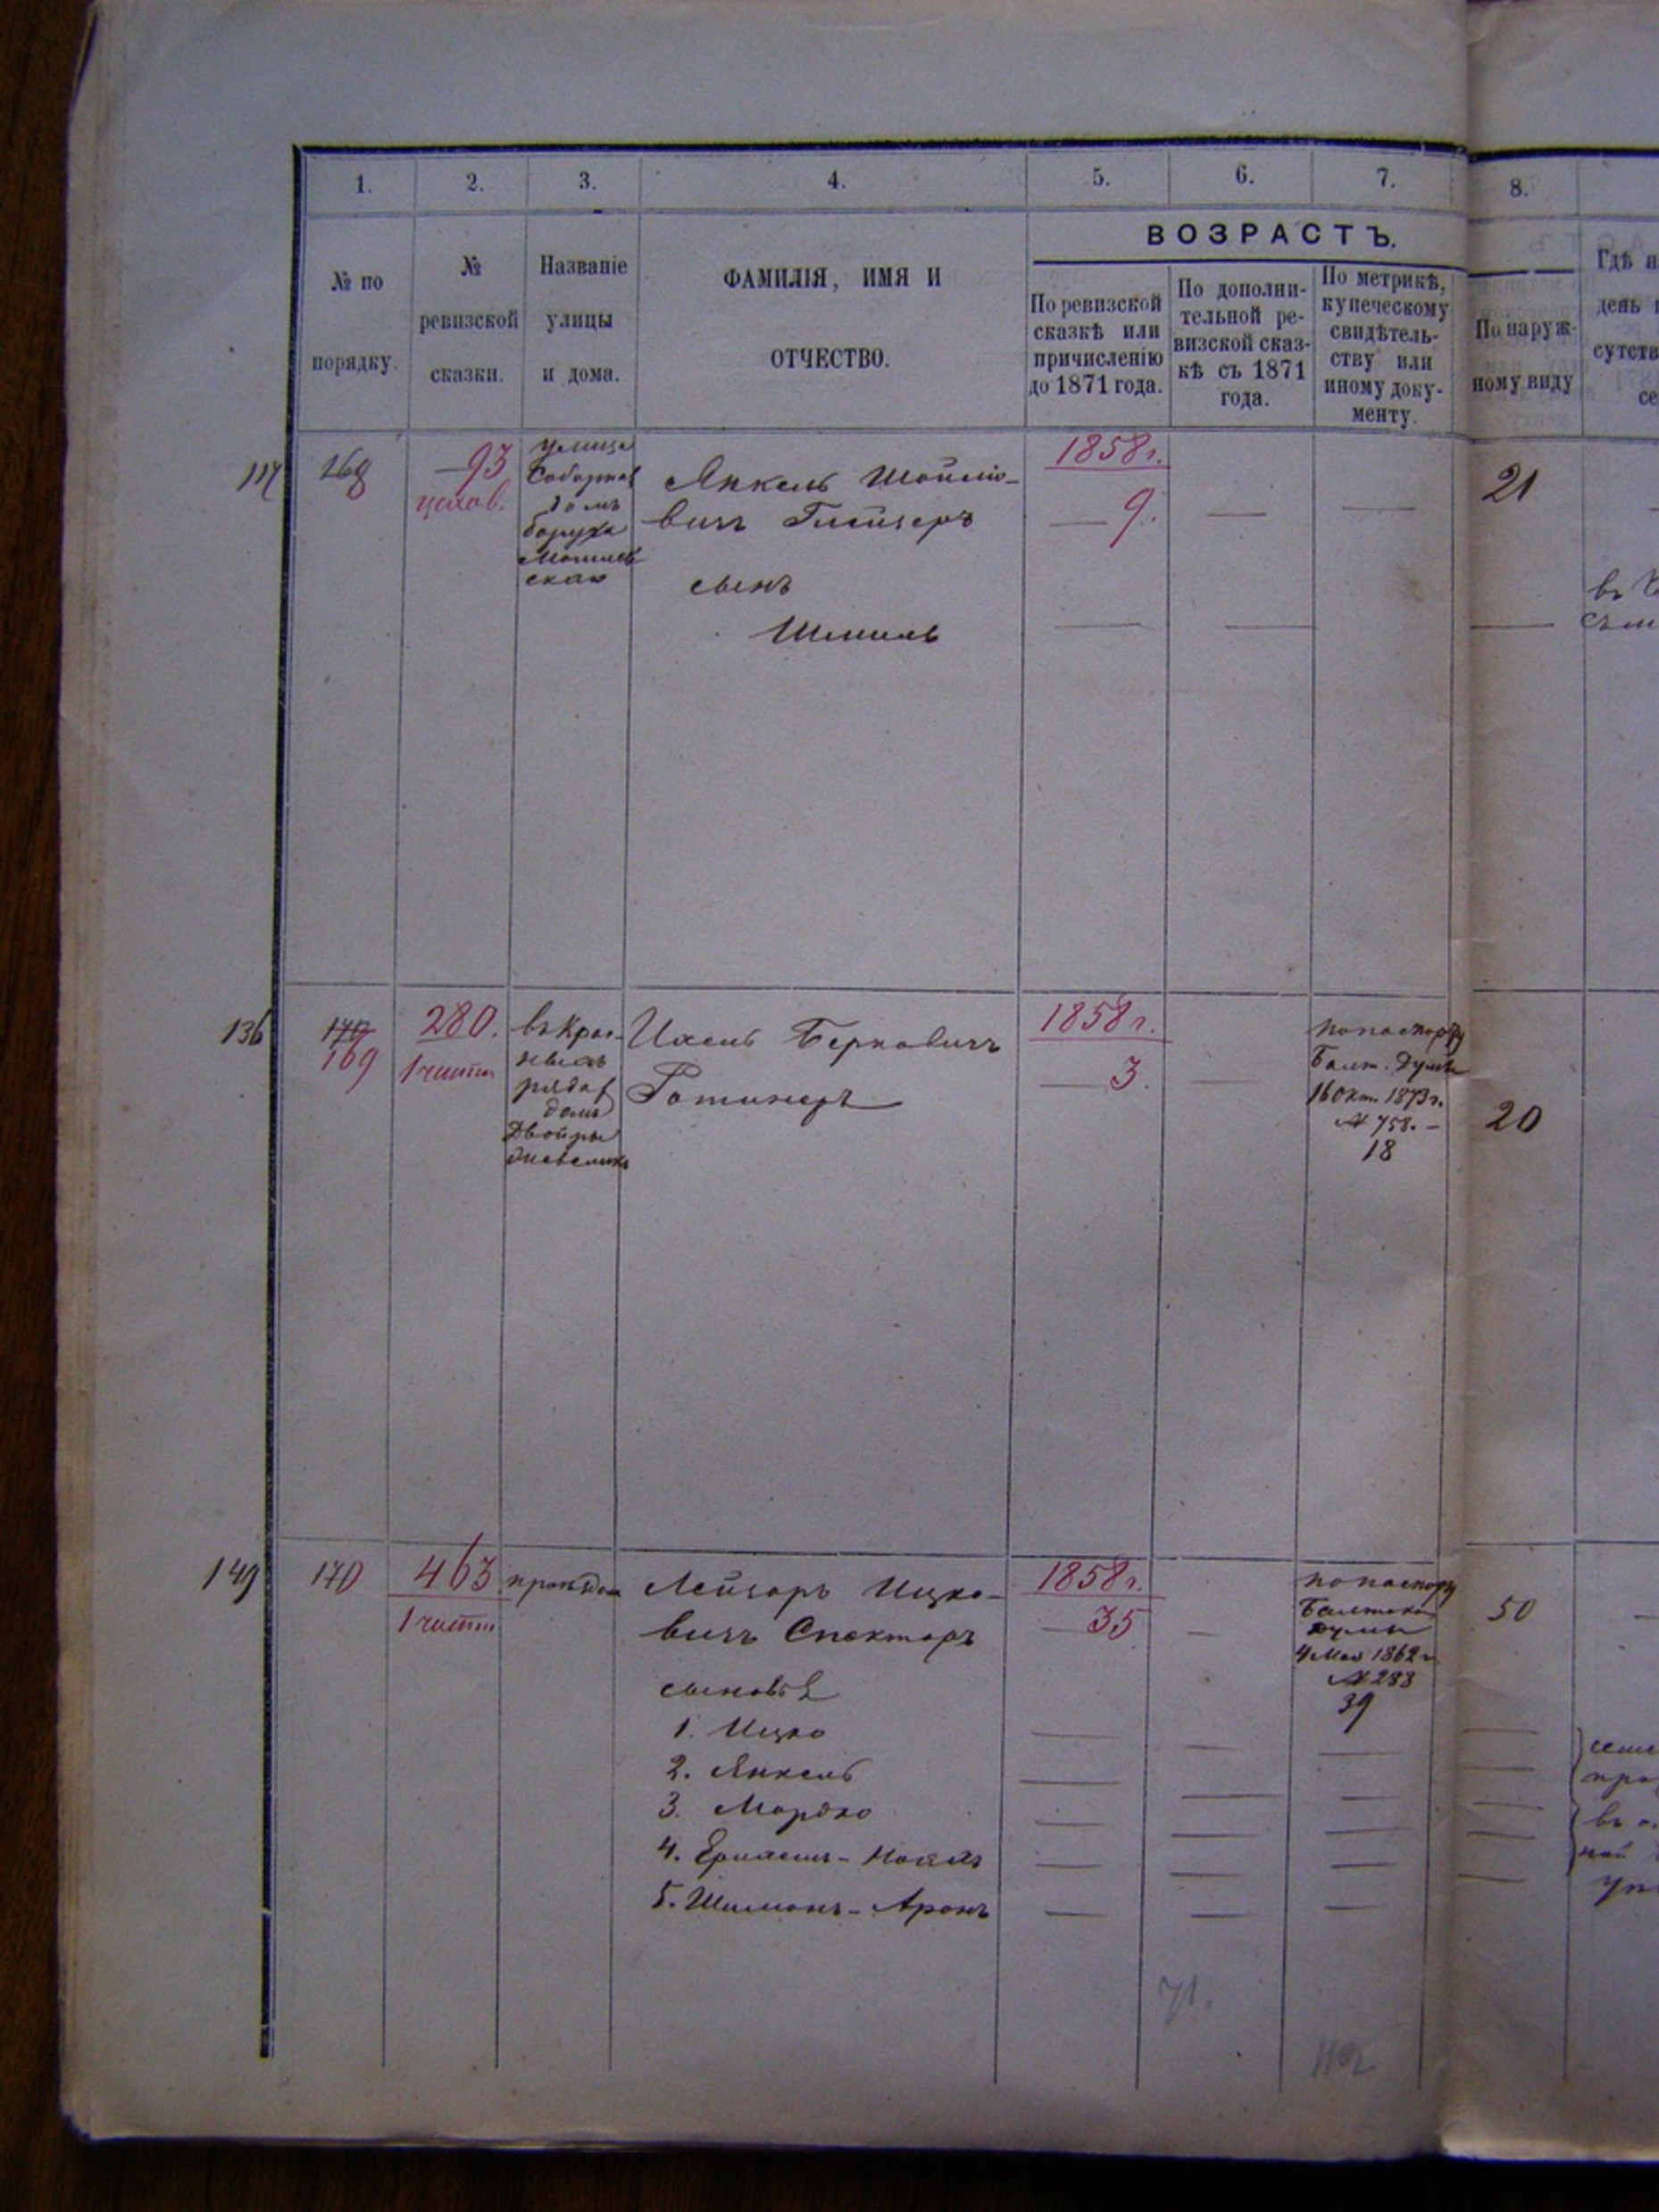 1. 2. 3. 4. 5. 6. 7. 8.
ВОЗРАСТЪ.
№ по
порядку.
№
ревизской
сказки.
Названіе
улицы
и дома.
ФАМИЛІЯ, ИМЯ И
ОТЧЕСТВО.
По ревизской
сказкѣ или
причисленію
до 1871 года.
По дополни-
тельной ре-
визской сказ-
кѣ съ 1871
года.
По метрикѣ,
купеческому
свидѣтель-
ству или
иному доку-
менту.
По наруж-
ному виду
Гдѣ н
день
сутств
се
117
168
93
цехов.
улица
Соборная
домъ
боруха
Могилев
скаго
Янкель Шойліо-
вичъ
сынъ
Шмиль
1858 г.
9.
21
въ
136
170
169
280.
1 части
въ Крас-
ныхъ
рядах
домъ
Двойры
Ихель Берковичъ
Ротинеръ
1858 г.
3.
по паспорту
Балт. Думы
16 Окт. 1873 г.
№ 758. –
18
20
149
170
463
1 части
Лейзоръ Ицко-
вичъ Спекторъ
сыновья
1. Ицко
2. Янкель
3. Мордко
4.
5. Шимонъ-Аронъ
1858 г.
35
по паспорту
Балтской
Думы
4 Мая 1862 г.
№ 283
39
50
въ
71.